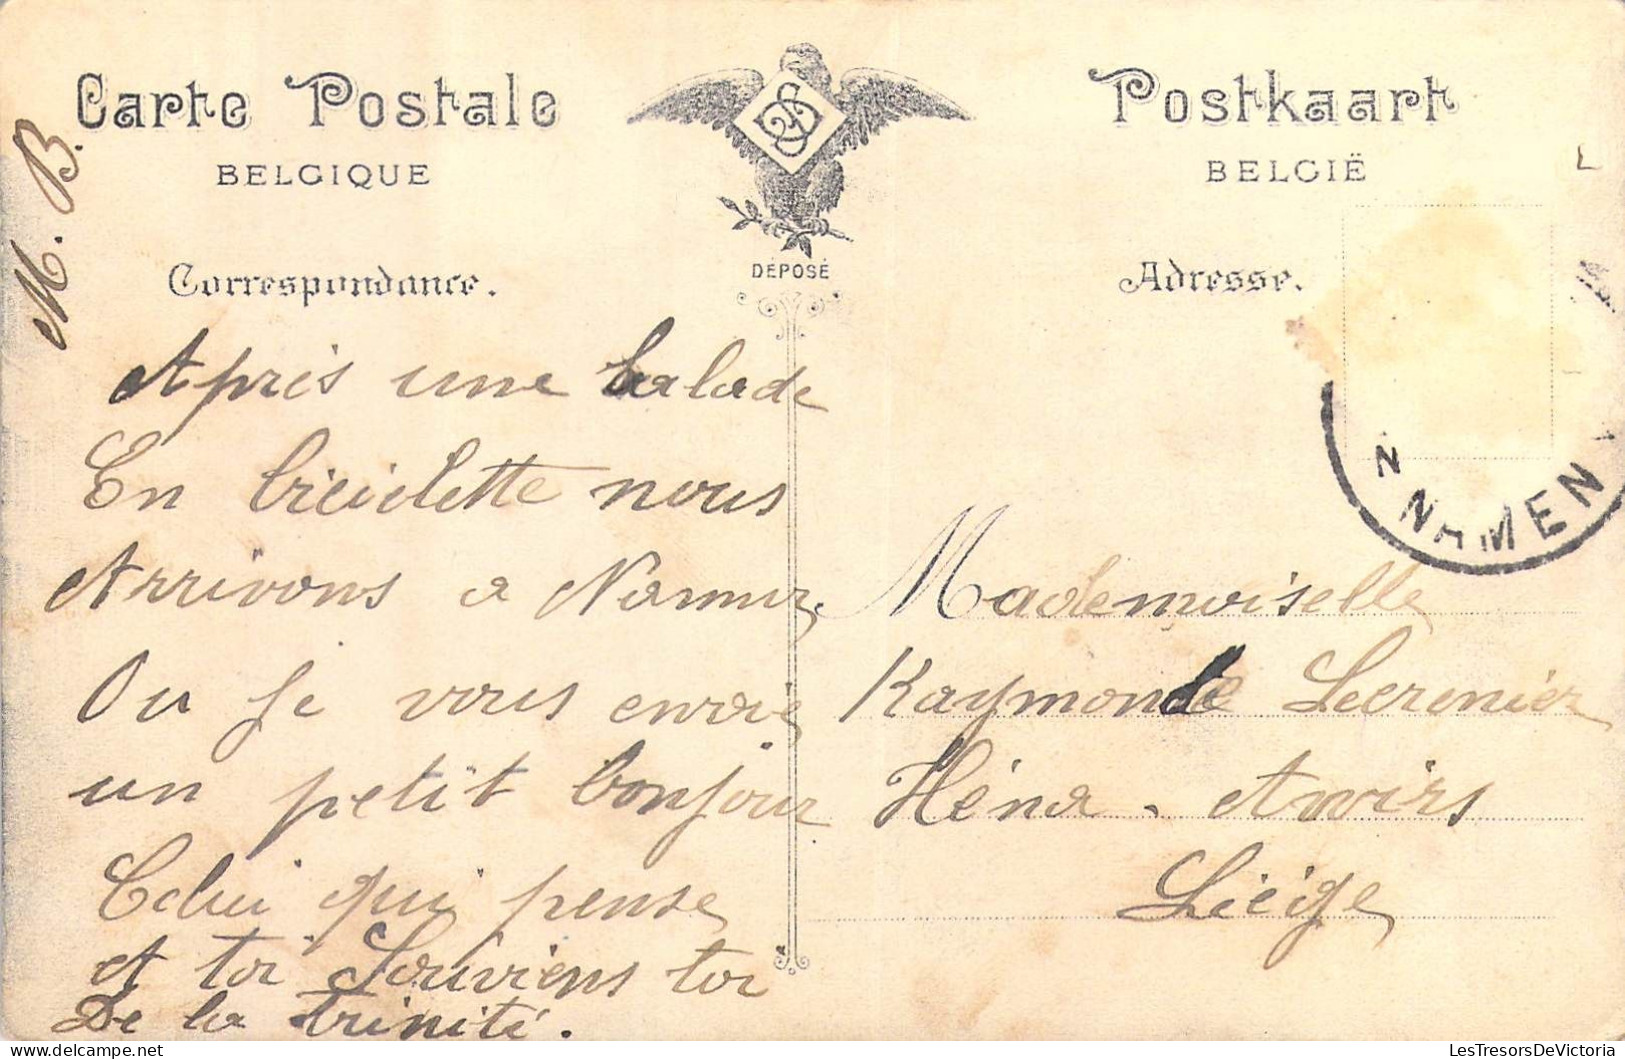 Carte Postale
BELGIQUE
Postkaart
BELGIË
M. B.
DÉPOSÉ
Correspondance.
Adresse.
N NAMEN
Après une balade
En biciclette nous
Arrivons a Namur
Ou je vous envoie
un petit bonjour
Celui qui pense
A toi Souviens toi
De la trinité.
Mademoiselle
Raymonde Lecrenier
Héna. Awirs
Liége
LesTresorsDeVictoria